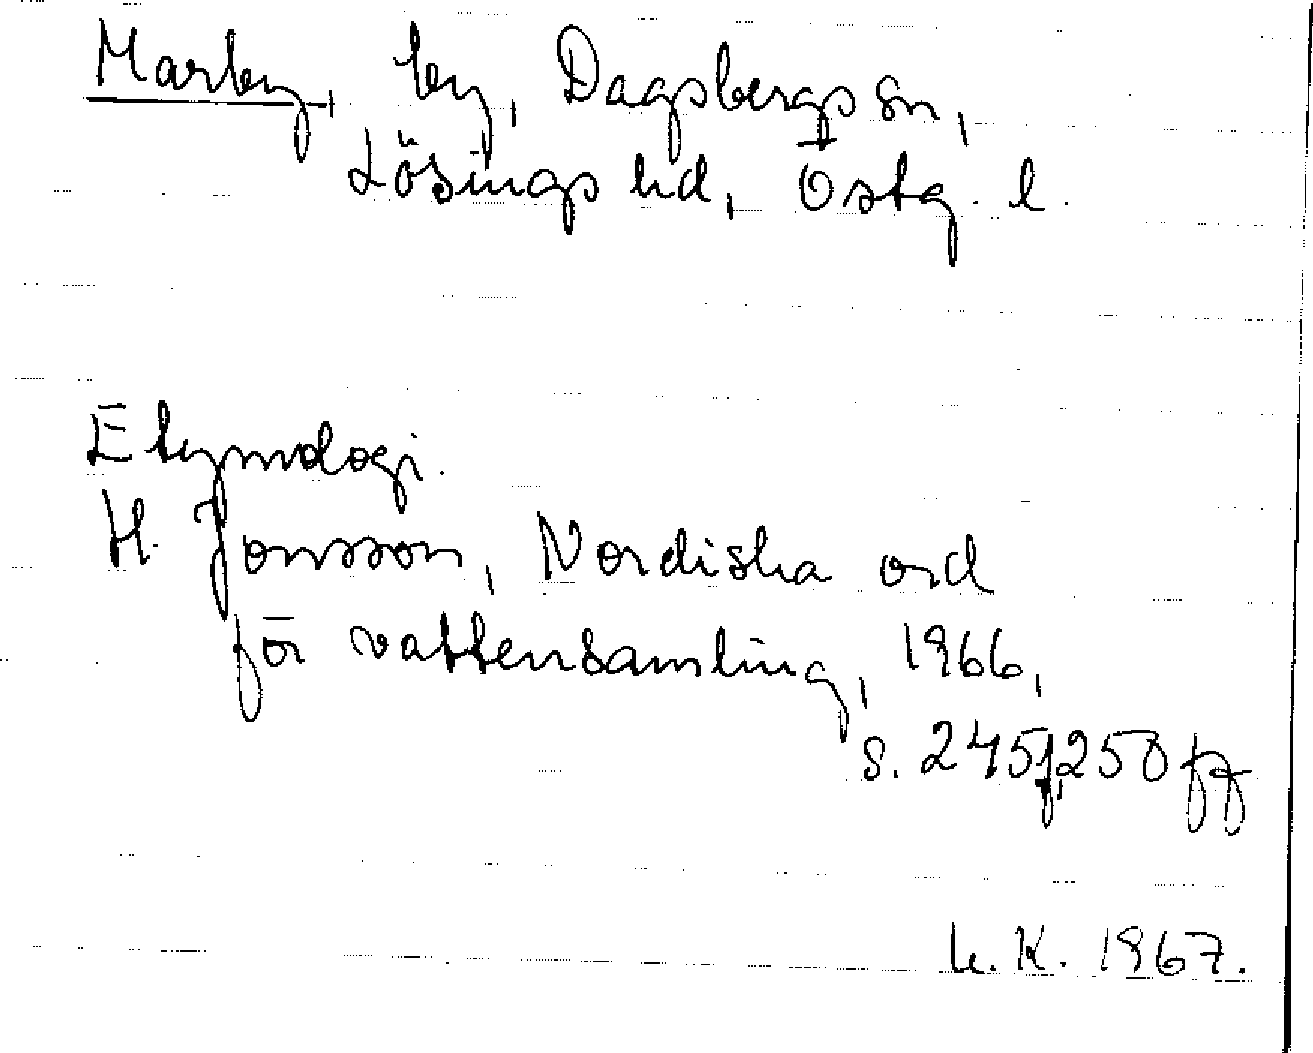 Marby, by, Dagsbergs sn,
Lösings hd, Östg. l.
Etymologi.
H. Jonsson, Nordiska ord
för vattensamling, 1966,
s. 245f, 250 ff
h. K. 1967.